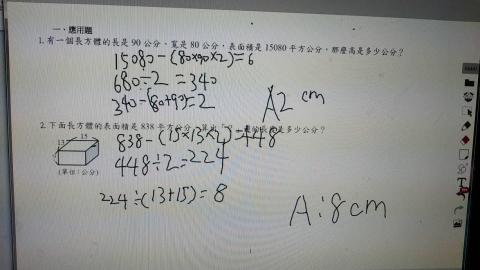 一、應用題
1. 有一個長方體的長是 90 公分，寬是 80 公分，表面積是 15080 平方公分，那麼高是多少公分？
15080-(80×90×2)=6
680÷2=340
340-(80+90)=2
A2 cm
2. 下面長方體的表面積是 838 平方公分，算出「?」的長度是多少公分？
838-(15×13×2)=448
15
13
448÷2=224
(單位:公分)
224÷(13+15)=8
A:8cm